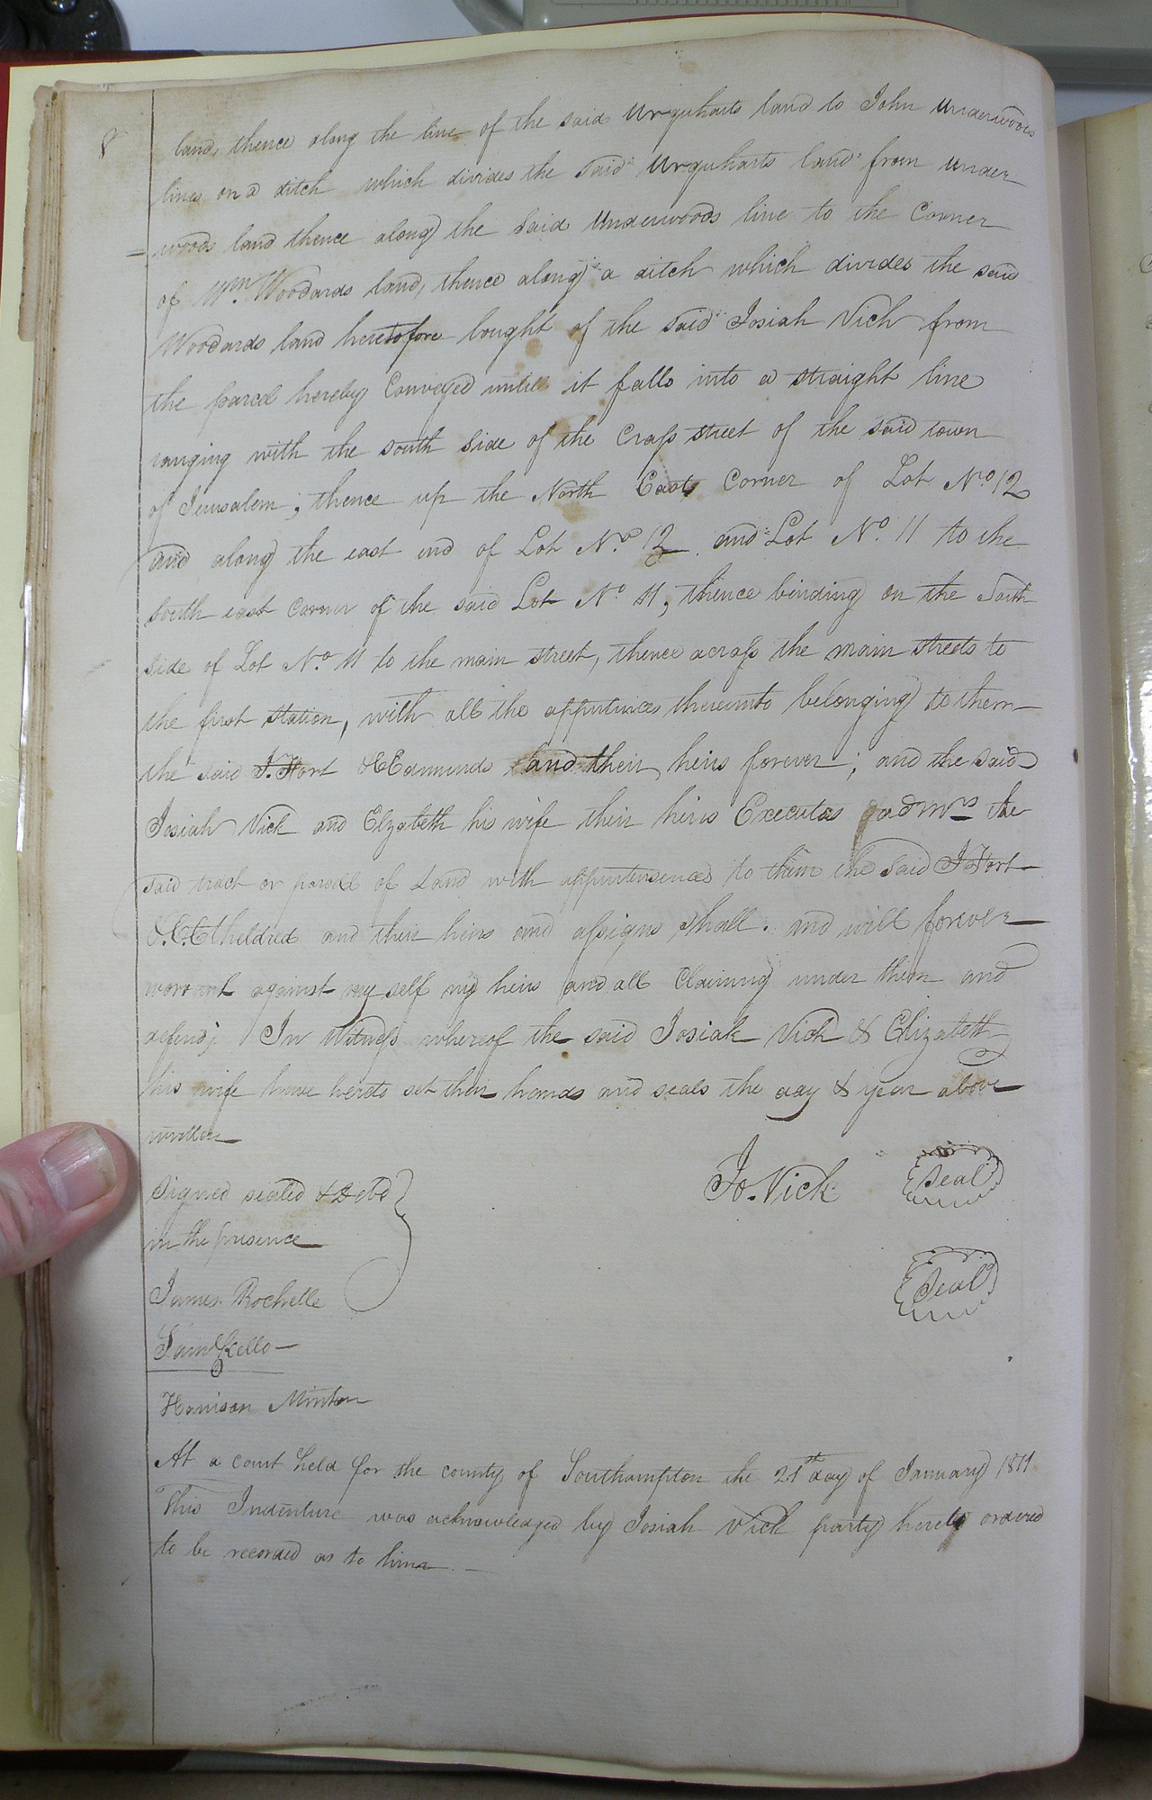 8
land, thence along the line of the said Urquharts land to John Underwoods
lines on a ditch which divides the said Urquharts land from under
= woods land thence along the said Underwoods line to the Corner
of Wm. Woodards land, thence along a ditch which divides the said
Woodards land heretofore bought of the said Josiah Vick from
the parcel hereby Conveyed untill it falls into a straight line
ranging with the south side of the Crass street of the said town
of Jerusalem; thence up the North East Corner of Lot No. 12
and along the east end of Lot No. 12 and Lot No. 11 to the
south east Corner of the said Lot No 11, thence binding on the South
side of Lot No. 11 to the main street, thence acrass the main streets to
the first station, with all the appurtinces thereunto belonging to them
the said J. Fort & Edmunds and their heirs forever; and the said
Josiah Vick and Elzabeth his wife their heirs Executos & admrs the
said tract or parcell of Land with appurtenences to them the said J Fort
& Etheldred and their heirs and assigns shall. and will forever
warrant against my self my heirs and all Claiming under them and
defend; In Witness whereof the said Josiah Vick & Elizabeth
his wife have hereto set their hands and seals the day & year above
written
Signed sealed & Deld
in the presence
Jo. Vick Seal
Seal
James Rochelle
Saml Kello
Harrison Minton
At a court held for the county of Southampton the 21st day of January 1811
This Indenture was acknowledged by Josiah Vick party hereto ordered
to be recorded as to him